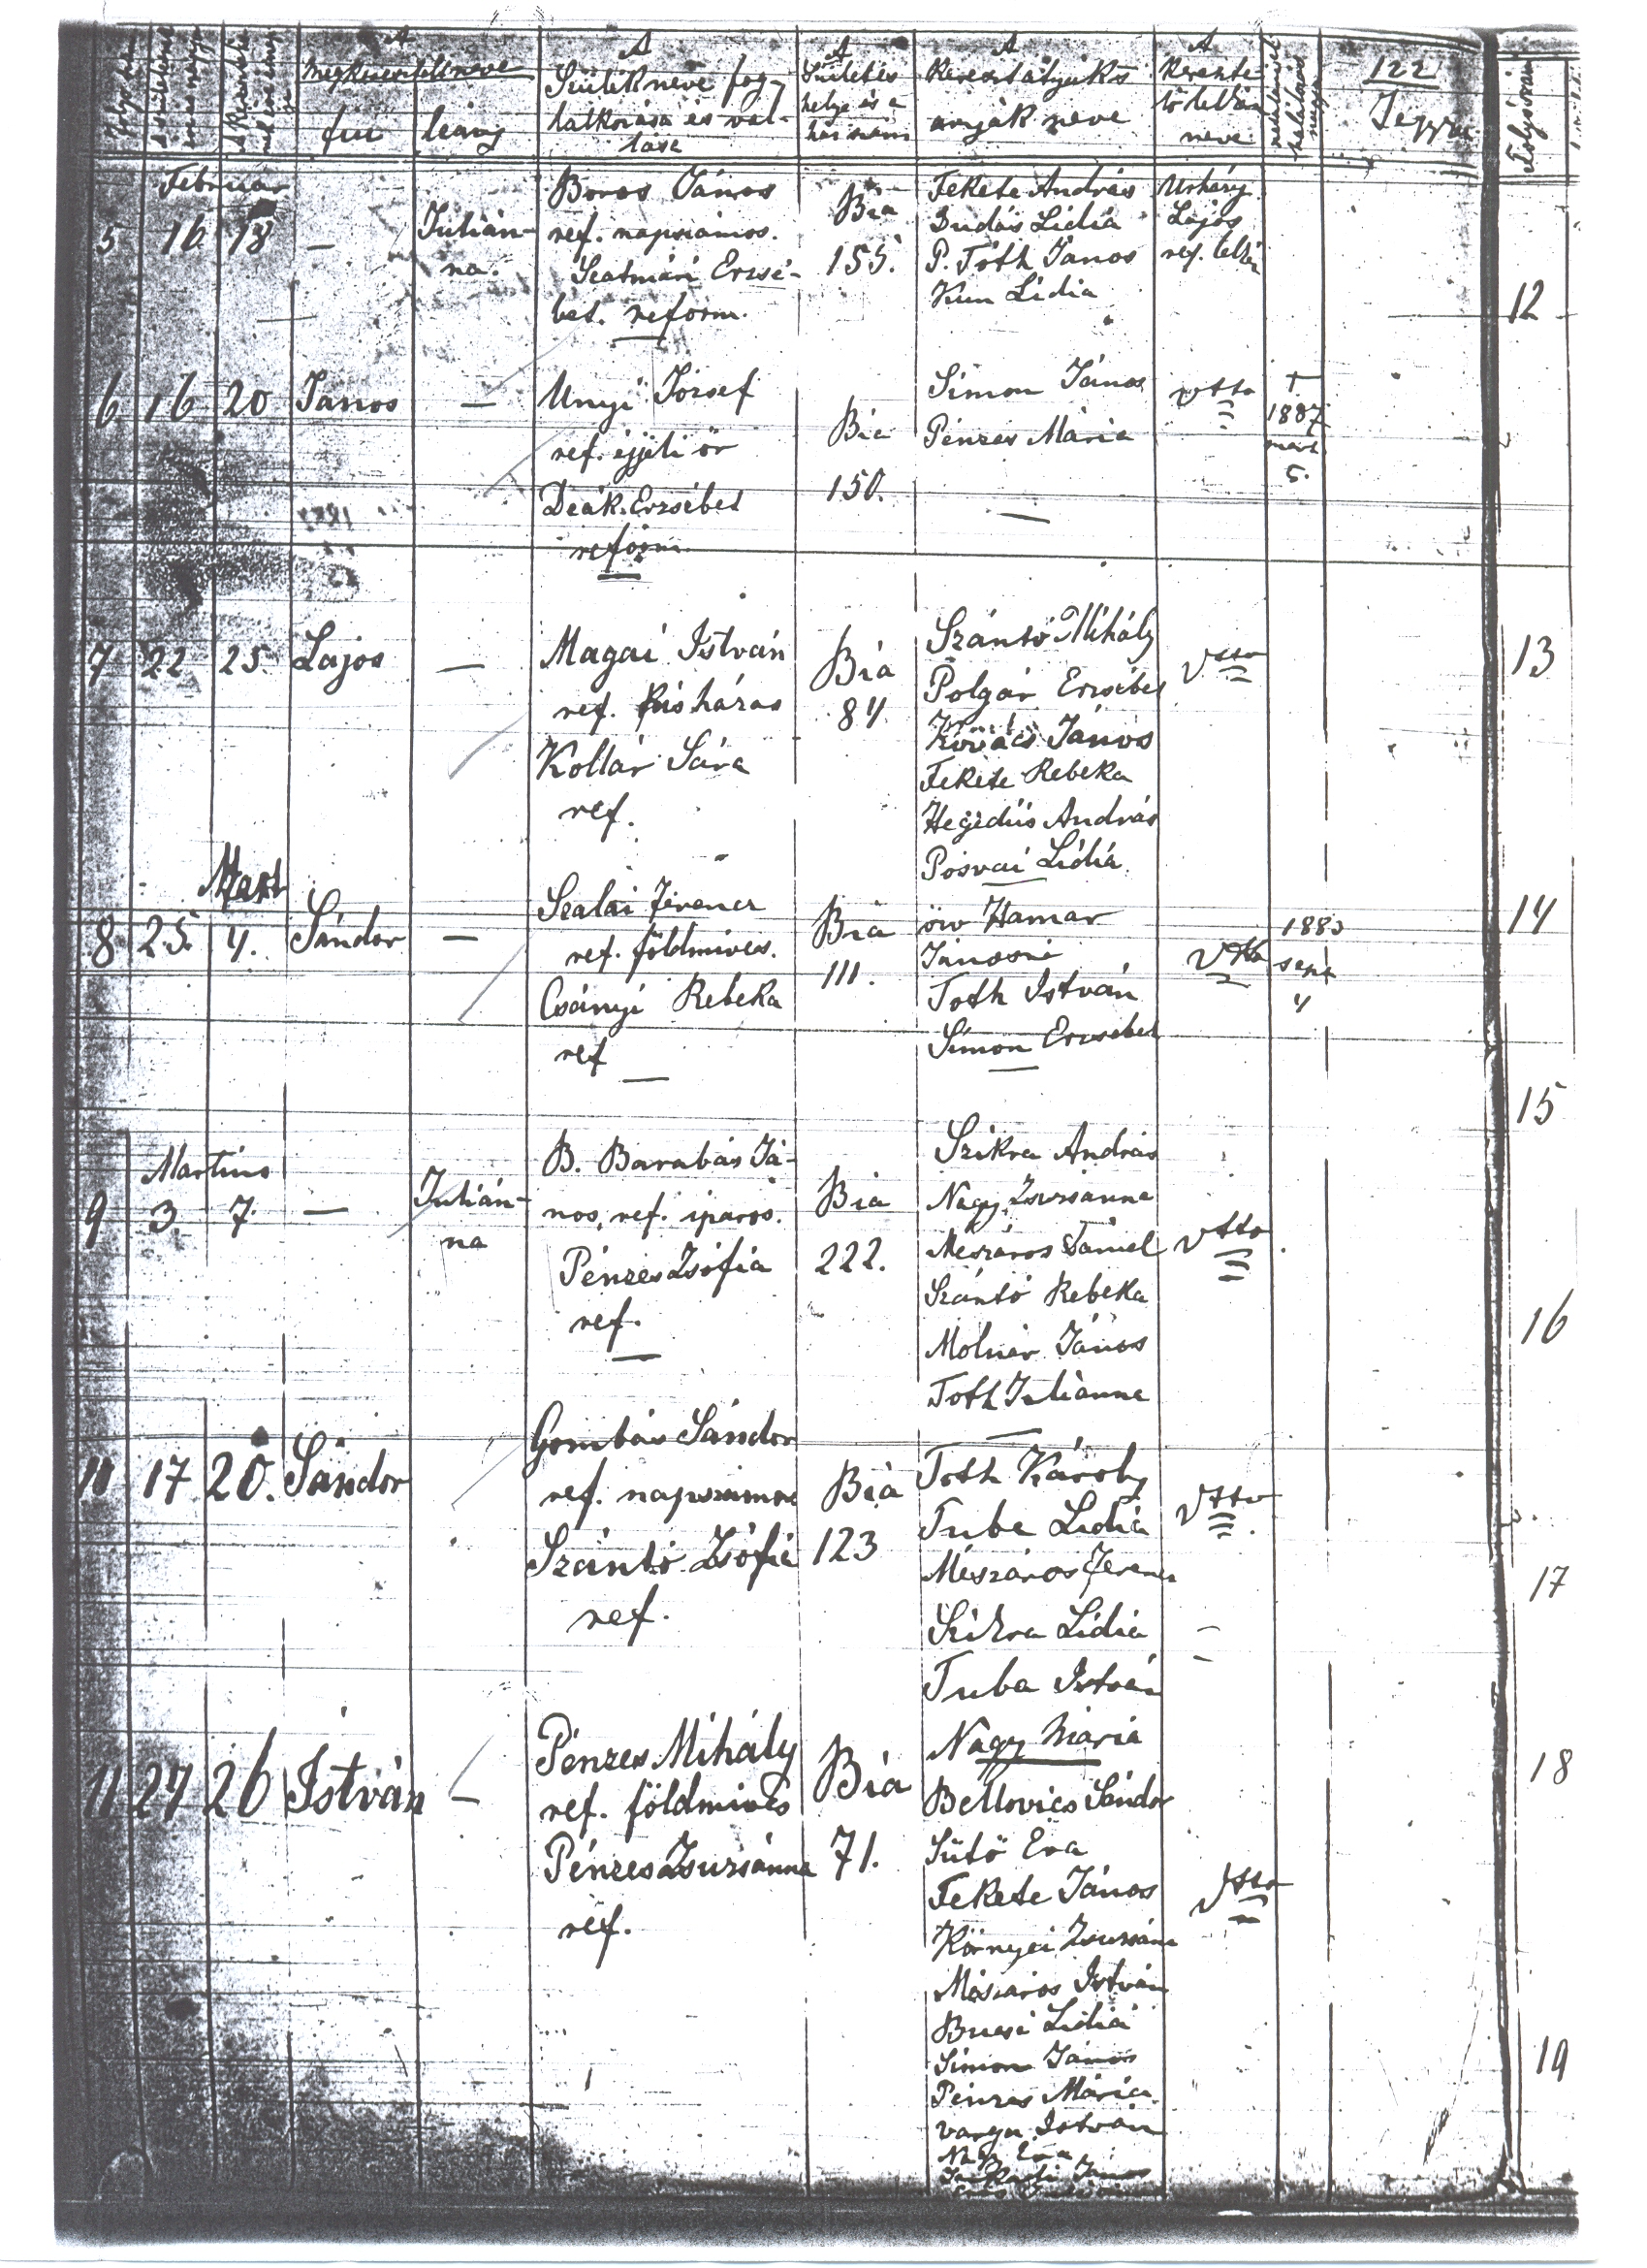 A
Megkereszteltneve
fiu
leány
A
Szülék neve fog-
lalkozása és val-
lása
A
Születés
helye és a
ház szám
A
Keresztatyák s
anyák neve
A
Keresz
tő lelkész
neve
122
Jegyze
Folyószám
Februar
5
16
18
—
Julián-
na.
Boros János
ref. napszámos.
Szatmári Erzsé-
bet. reform.
Bia
155.
Fekete András
Budás Lidia
P. Tóth János
Kun Lidia
Urházy
Lajos
ref. lelkész
12
6.
16
20
János
—
Unyi József
ref. éjjeli őr
Deák Erzsébet
reform.
Bia
150.
Simon János
Pénzes Mária
—
Vtto
†
1887
mart.
5.
7
22
25
Lajos
—
Magai István
ref. kis házas
Kollár Sára
ref.
Bia
84.
Szántó Mihály
Polgár Erzsébet
Kovács János
Fekete Rebeka
Hegedüs András
Posvai Lidia.
Vtto
13
Mart
8
25.
4.
Sándor
—
Szalai Ferencz
ref. földmives.
Csányi Rebeka
ref
Bia
111.
özv Hamar
Jánosné
Toth István
Simon Erzsébet
Vtto
1883
sept
4
14
15
Martius
9
3.
7.
—
Julián-
na
B. Barabás Já-
nos, ref. iparos.
Pénzes Zsófia
ref.
Bia
222.
Szikra András
Nagy Zsuzsánna
Mészáros Dániel
Szántó Rebeka
Molnár János
Toth Julianna
Vtto
16
10
17
20.
Sándor
Gombás Sándor
ref. napszámos
Szántó Zsófia
ref.
Bia
123
Toth Károly
Tuba Lidia
Mészáros Ferencz
Szikra Lidia
Tuba István
Nagy Mária
Vtto
17
11
24
26
István
—
Pénzes Mihály
ref. földmives
Pénzes Zsuzsánna
ref.
Bia
71.
Bellovics Sándor
Sütő Éva
Fekete János
Környei Zsuzsána
Mészáros István
Bucsi Lidia
Simon János
Pénzes Mária
Varga István
Nagy Éva
János
Vtto
18
19